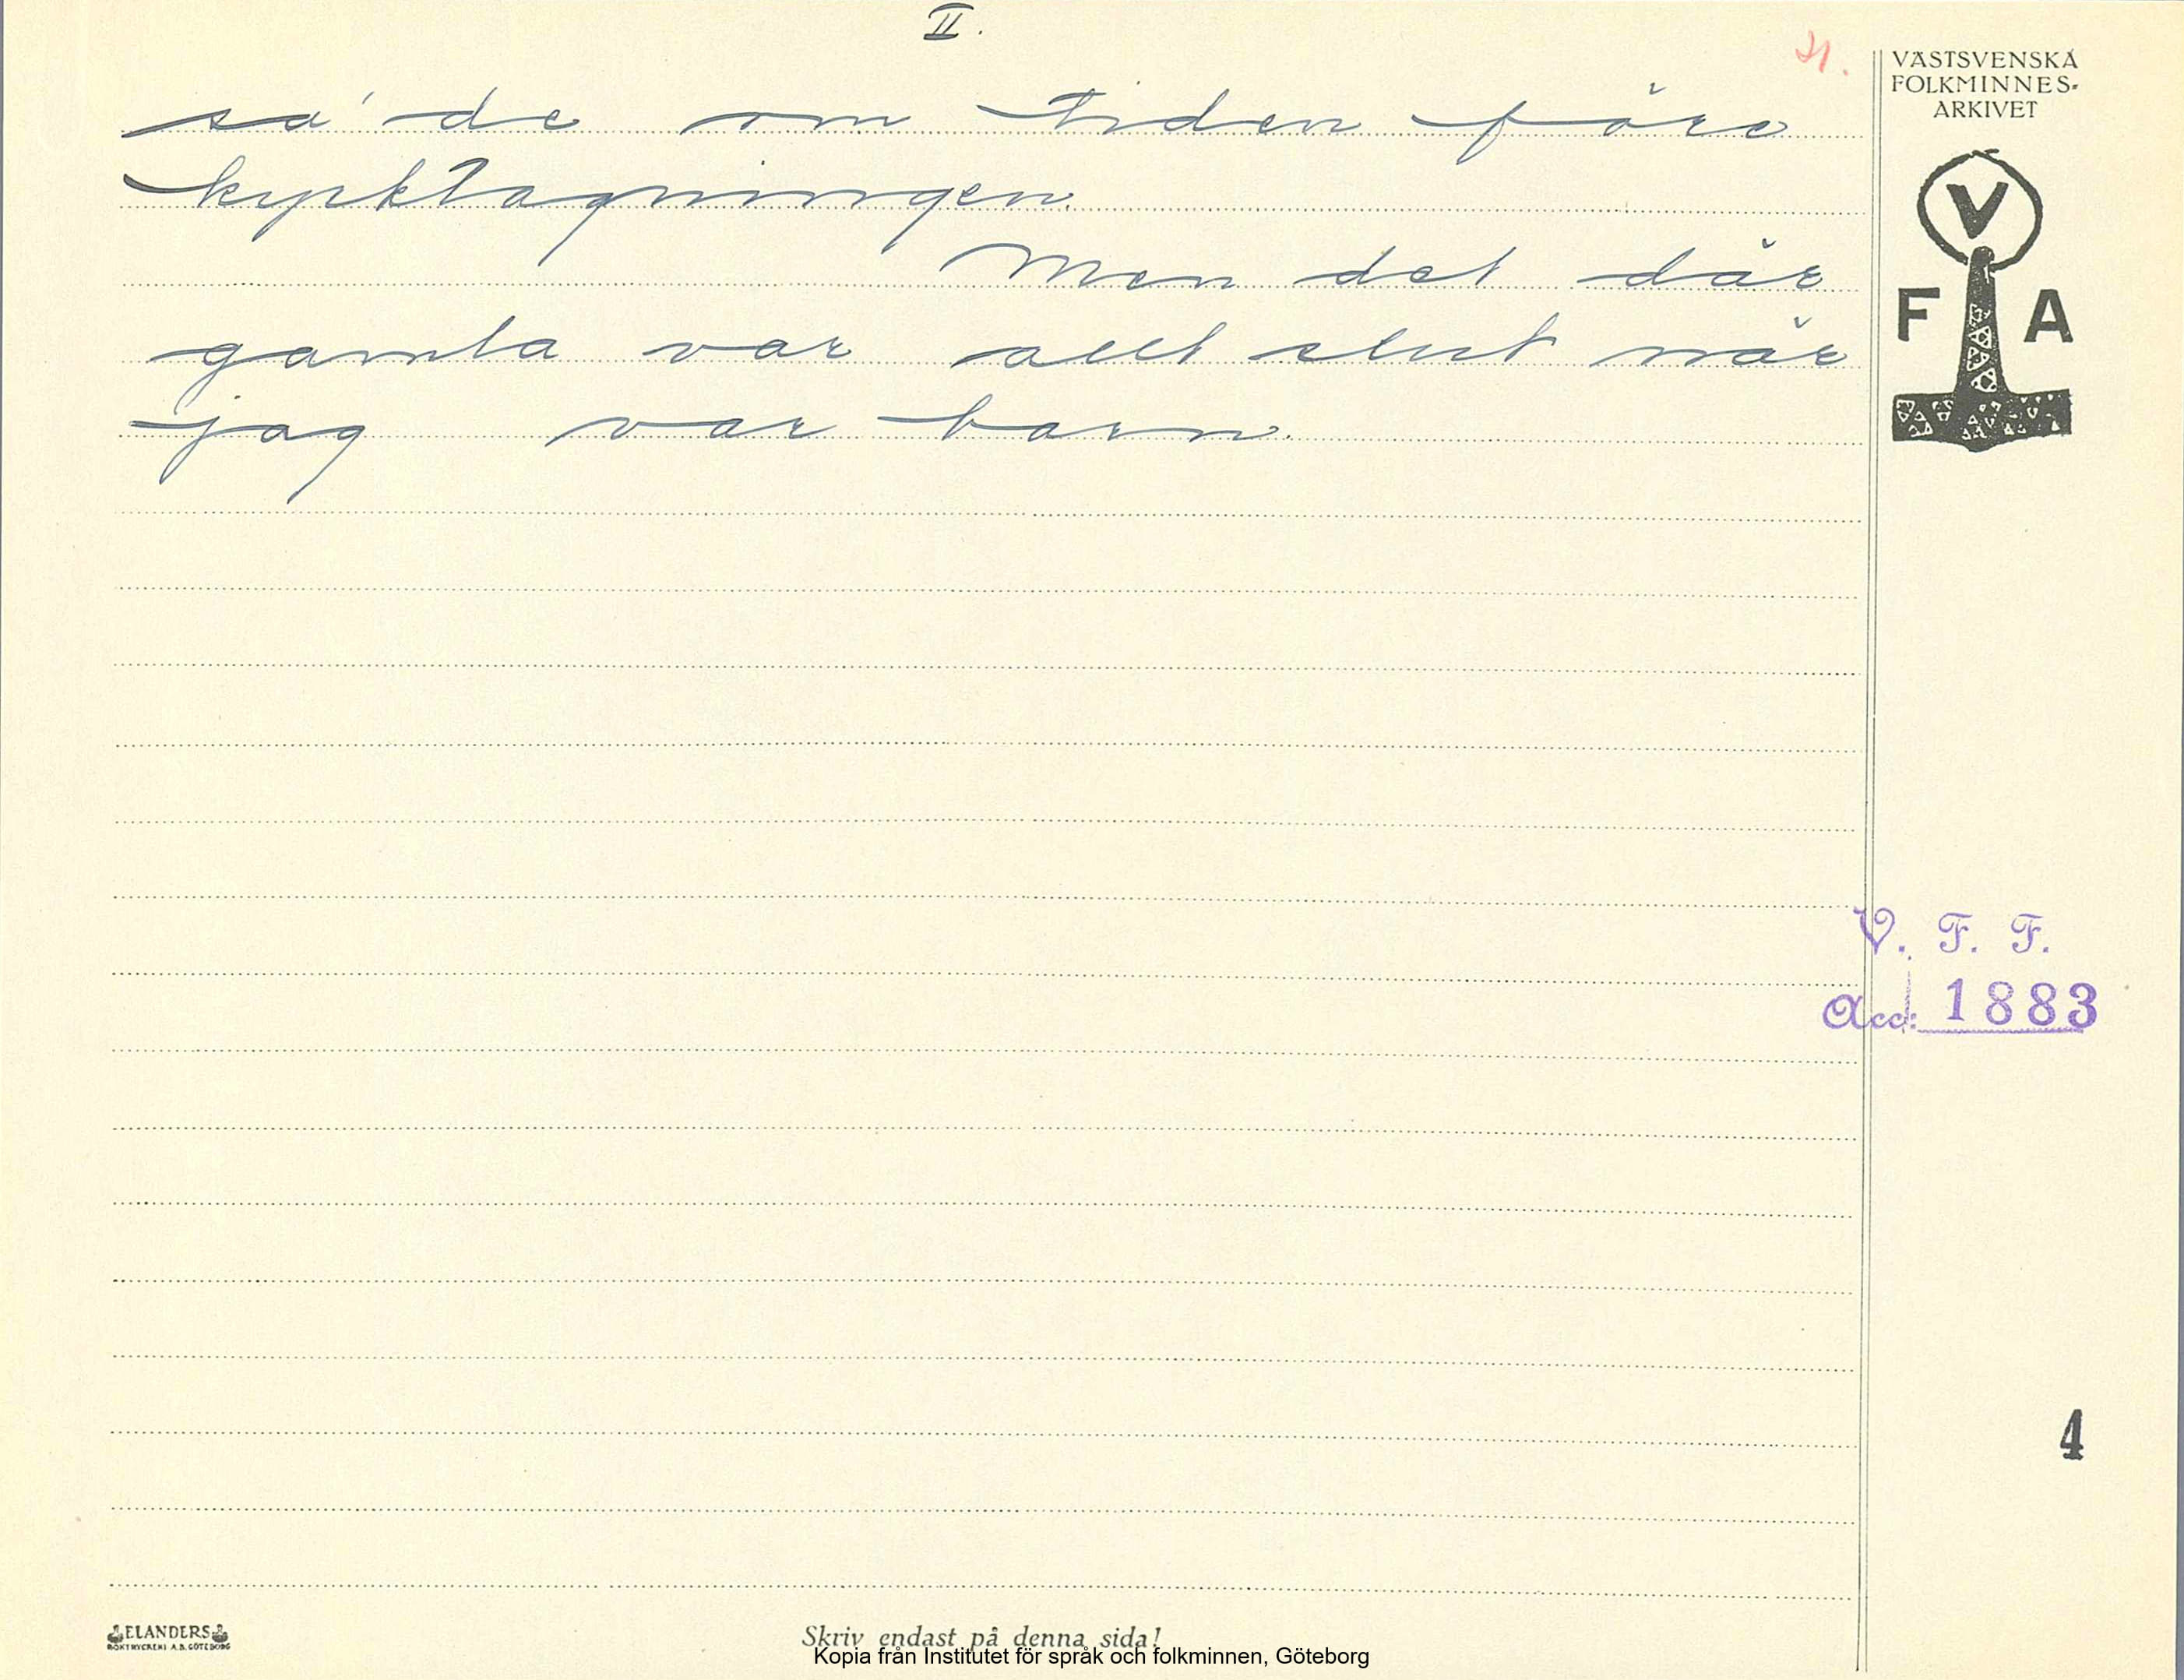 II.
21.
sa' de om tiden före
kyrktagningen.
Men det där
gamla var allt slut när
jag var barn.
VÄSTSVENSKA
FOLKMINNES-
ARKIVET
V
F A
V. F. F.
Acc: 1883
4
ELANDERS
BOKTRYCKERI A.B. GÖTEBORG
Skriv endast på denna sida!
Kopia från Institutet för språk och folkminnen, Göteborg